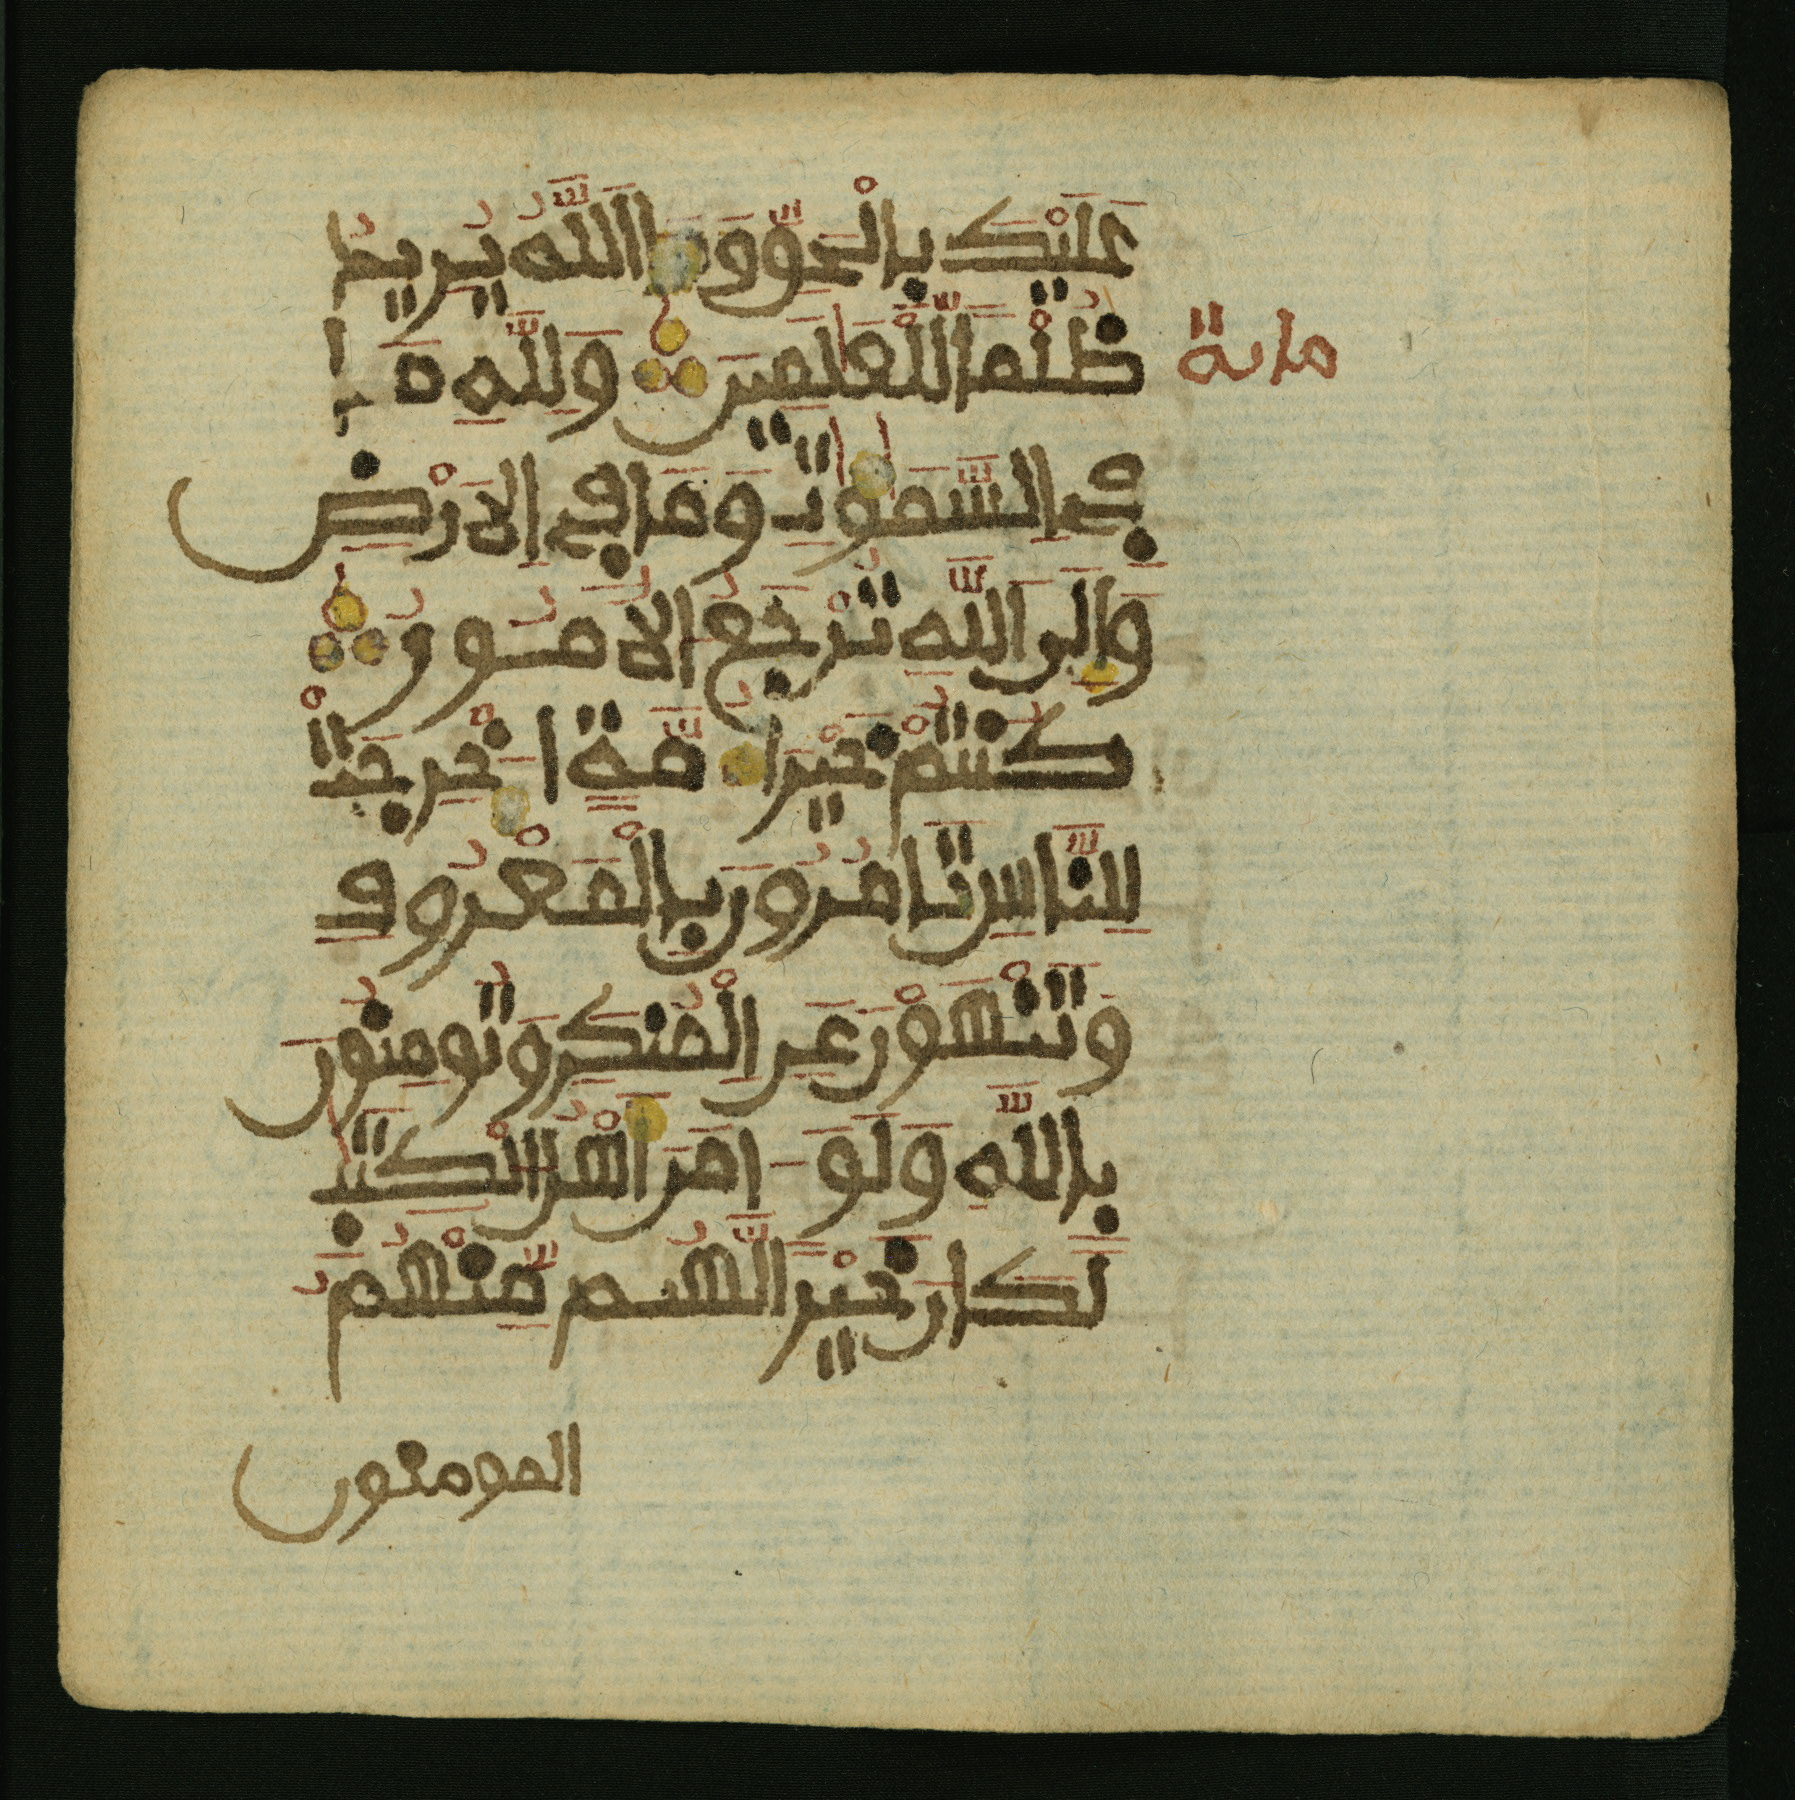 عَلَيْكَ بِالْحَقِّ وَمَا اللَّهُ يُرِيدُ
ظُلْمًا لِّلْعَلَمِينَ وَلِلَّهِ مَا
مائة
فِى السَّمَوَتِ وَمَا فِى الَارْضِ
وَإِلَى اللَّهِ تُرْجَعُ الُامُورُ
كُنتُمْ خَيْرَ أُمَّةٍ اخْرِجَتْ
لِلنَّاسِ تَامُرُونَ بِالْمَعْرُوفِ
وَتَنْهَوْنَ عَنِ الْمُنكَرِ وَتُومِنُونَ
بِاللَّهِ وَلَوَ امَنَ أَهْلُ الْكِتَبِ
لَكَانَ خَيْرًا لَّهُم مِّنْهُمُ
المومنون